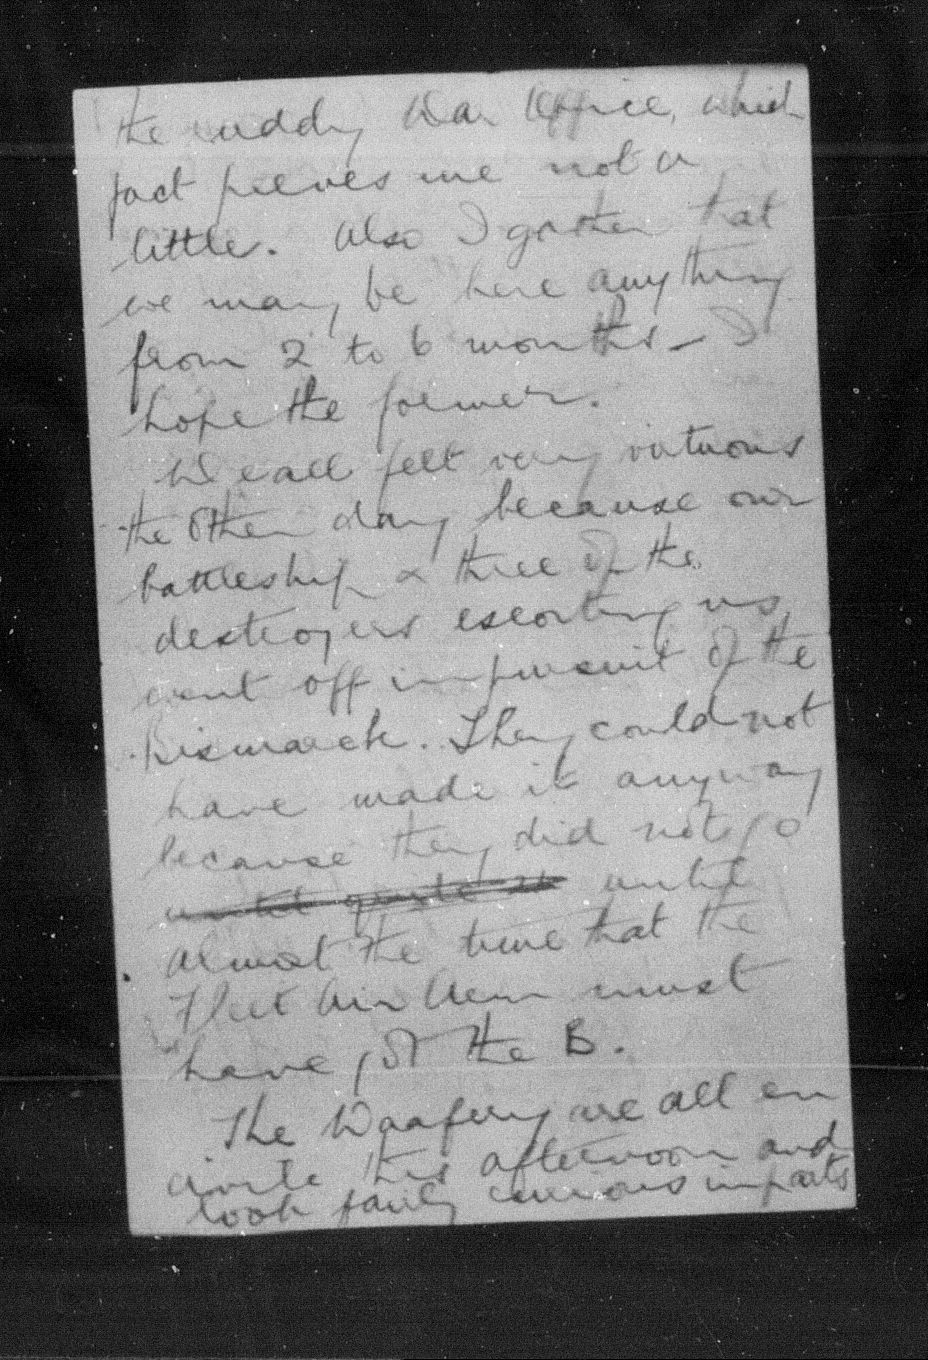 the ruddy War Office, which
fact peeves me not a
little. Also I gather that
we may be here anything
from 2 to 6 months — I
hope the former.
We all felt very virtuous
the other day because our
battleship & three of the
destroyers escorting us
went off in pursuit of the
Bismarck. They could not
have made it anyway
because they did not go
until quite until
almost the time that the
Fleet Air Arm must
have got the B.
The Waafery are all en
civile this afternoon and
look fairly curious in parts